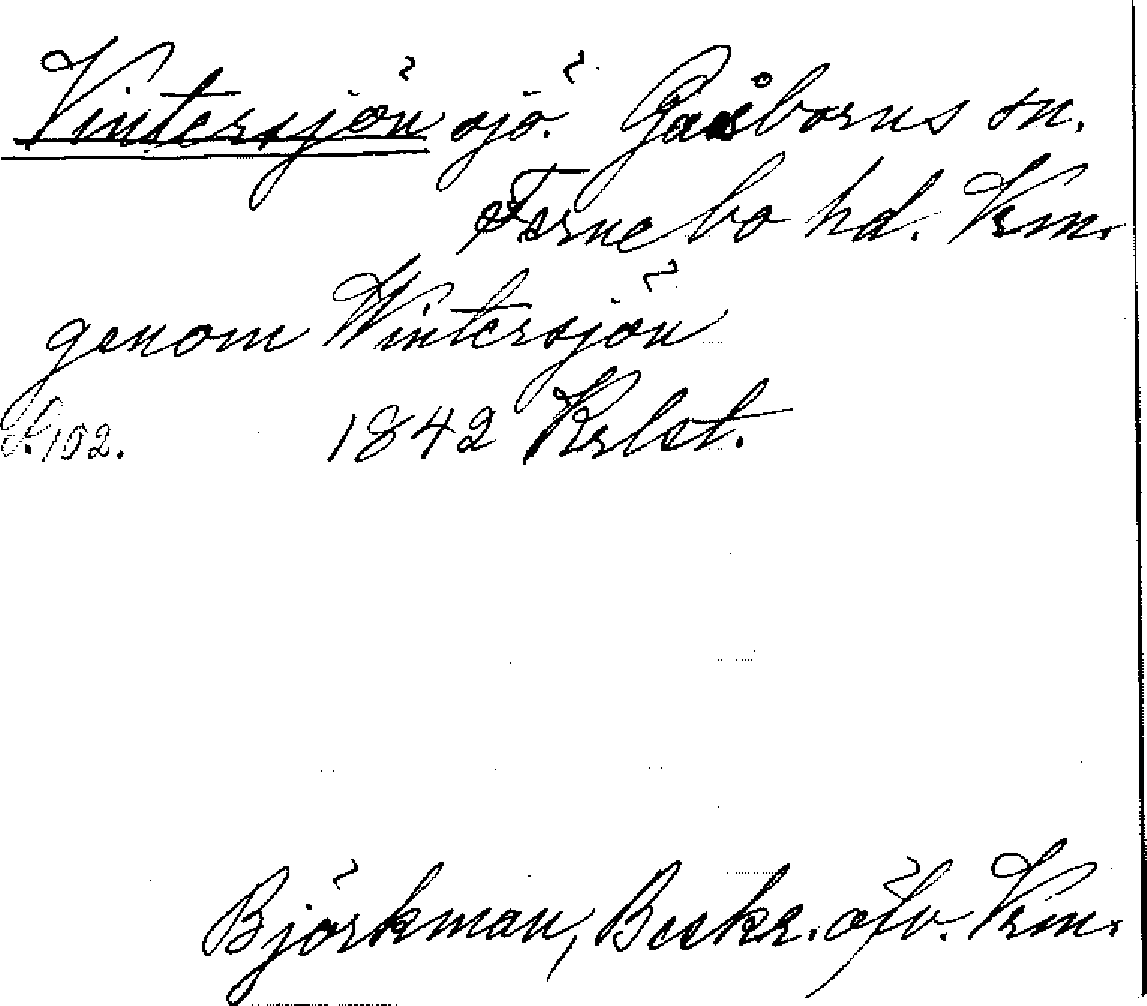 Vintersjön sjö. Gåsborns sn.
Fernebo hd. Vrm.
genom Wintersjön
S. 102. 1842 Krlst.
Björkman, Beskr. öfv. Vrm.